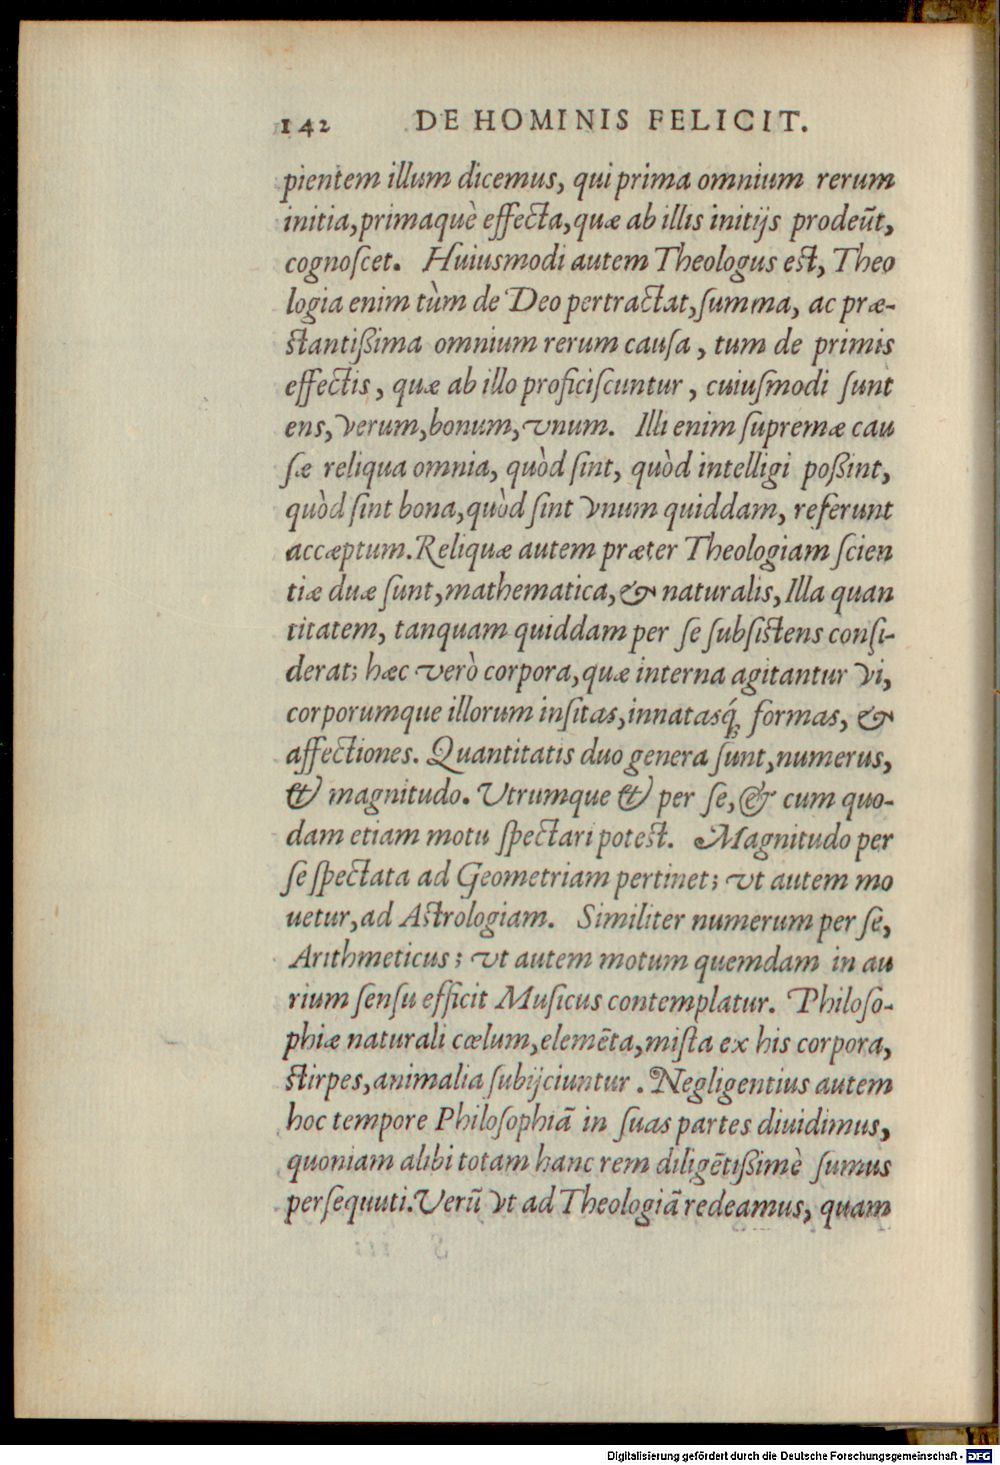 142 DE HOMINIS FELICIT.
pientem illum dicemus, qui prima omnium rerum
initia, primaquè effecta, quæ ab illis initijs prodeũt,
cognoſcet. Huiusmodi autem Theologus est, Theo
logia enim tùm de Deo pertractat, ſumma, ac præ-
stantißima omnium rerum cauſa, tum de primis
effectis, quæ ab illo proficiſcuntur, cuiuſmodi ſunt
ens, verum, bonum, vnum. Illi enim ſupremæ cau
ſæ reliqua omnia, quòd ſint, quòd intelligi poßint,
quòd ſint bona, quòd ſint vnum quiddam, referunt
accæptum. Reliquæ autem præter Theologiam ſcien
tiæ duæ ſunt, mathematica, & naturalis, Illa quan
titatem, tanquam quiddam per ſe ſubſistens conſi-
derat; hæc verò corpora, quæ interna agitantur vi,
corporumque illorum inſitas, innatasq́; formas, &
affectiones. Quantitatis duo genera ſunt, numerus,
& magnitudo. Vtrumque & per ſe, & cum quo-
dam etiam motu ſpectari potest. Magnitudo per
ſe ſpectata ad Geometriam pertinet; vt autem mo
uetur, ad Astrologiam. Similiter numerum per ſe,
Arithmeticus; vt autem motum quemdam in au
rium ſenſu efficit Muſicus contemplatur. Philoſo-
phiæ naturali cœlum, elemẽta, miſta ex his corpora,
stirpes, animalia ſubijciuntur. Negligentius autem
hoc tempore Philoſophiã in ſuas partes diuidimus,
quoniam alibi totam hanc rem diligẽtißimè ſumus
perſequuti. Verũ vt ad Theologiã redeamus, quam
Digitalisierung gefördert durch die Deutsche Forschungsgemeinschaft - DFG